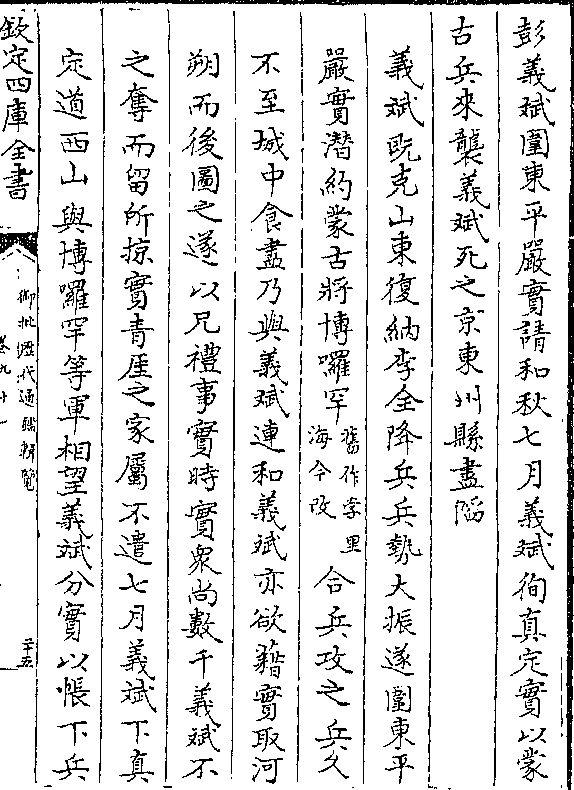 彭義斌圍東平嚴實請和秋七月義斌徇真定實以蒙
古兵來襲義斌死之京東州縣盡陷
義斌既克山東復納李全降兵兵勢大振遂圍東平
嚴實潛約蒙古將博囉罕舊作孛里海今改合兵攻之兵久
不至城中食盡乃與義斌連和義斌亦欲藉實取河
朔而後圖之遂以兄禮事實時實衆尚數千義斌不
之奪而留所掠實青厓之家屬不遣七月義斌下真
定道西山與博囉罕等軍相望義斌分實以帳下兵
欽定四庫全書
御批歷代通鑑輯覽
卷九十一
二十五